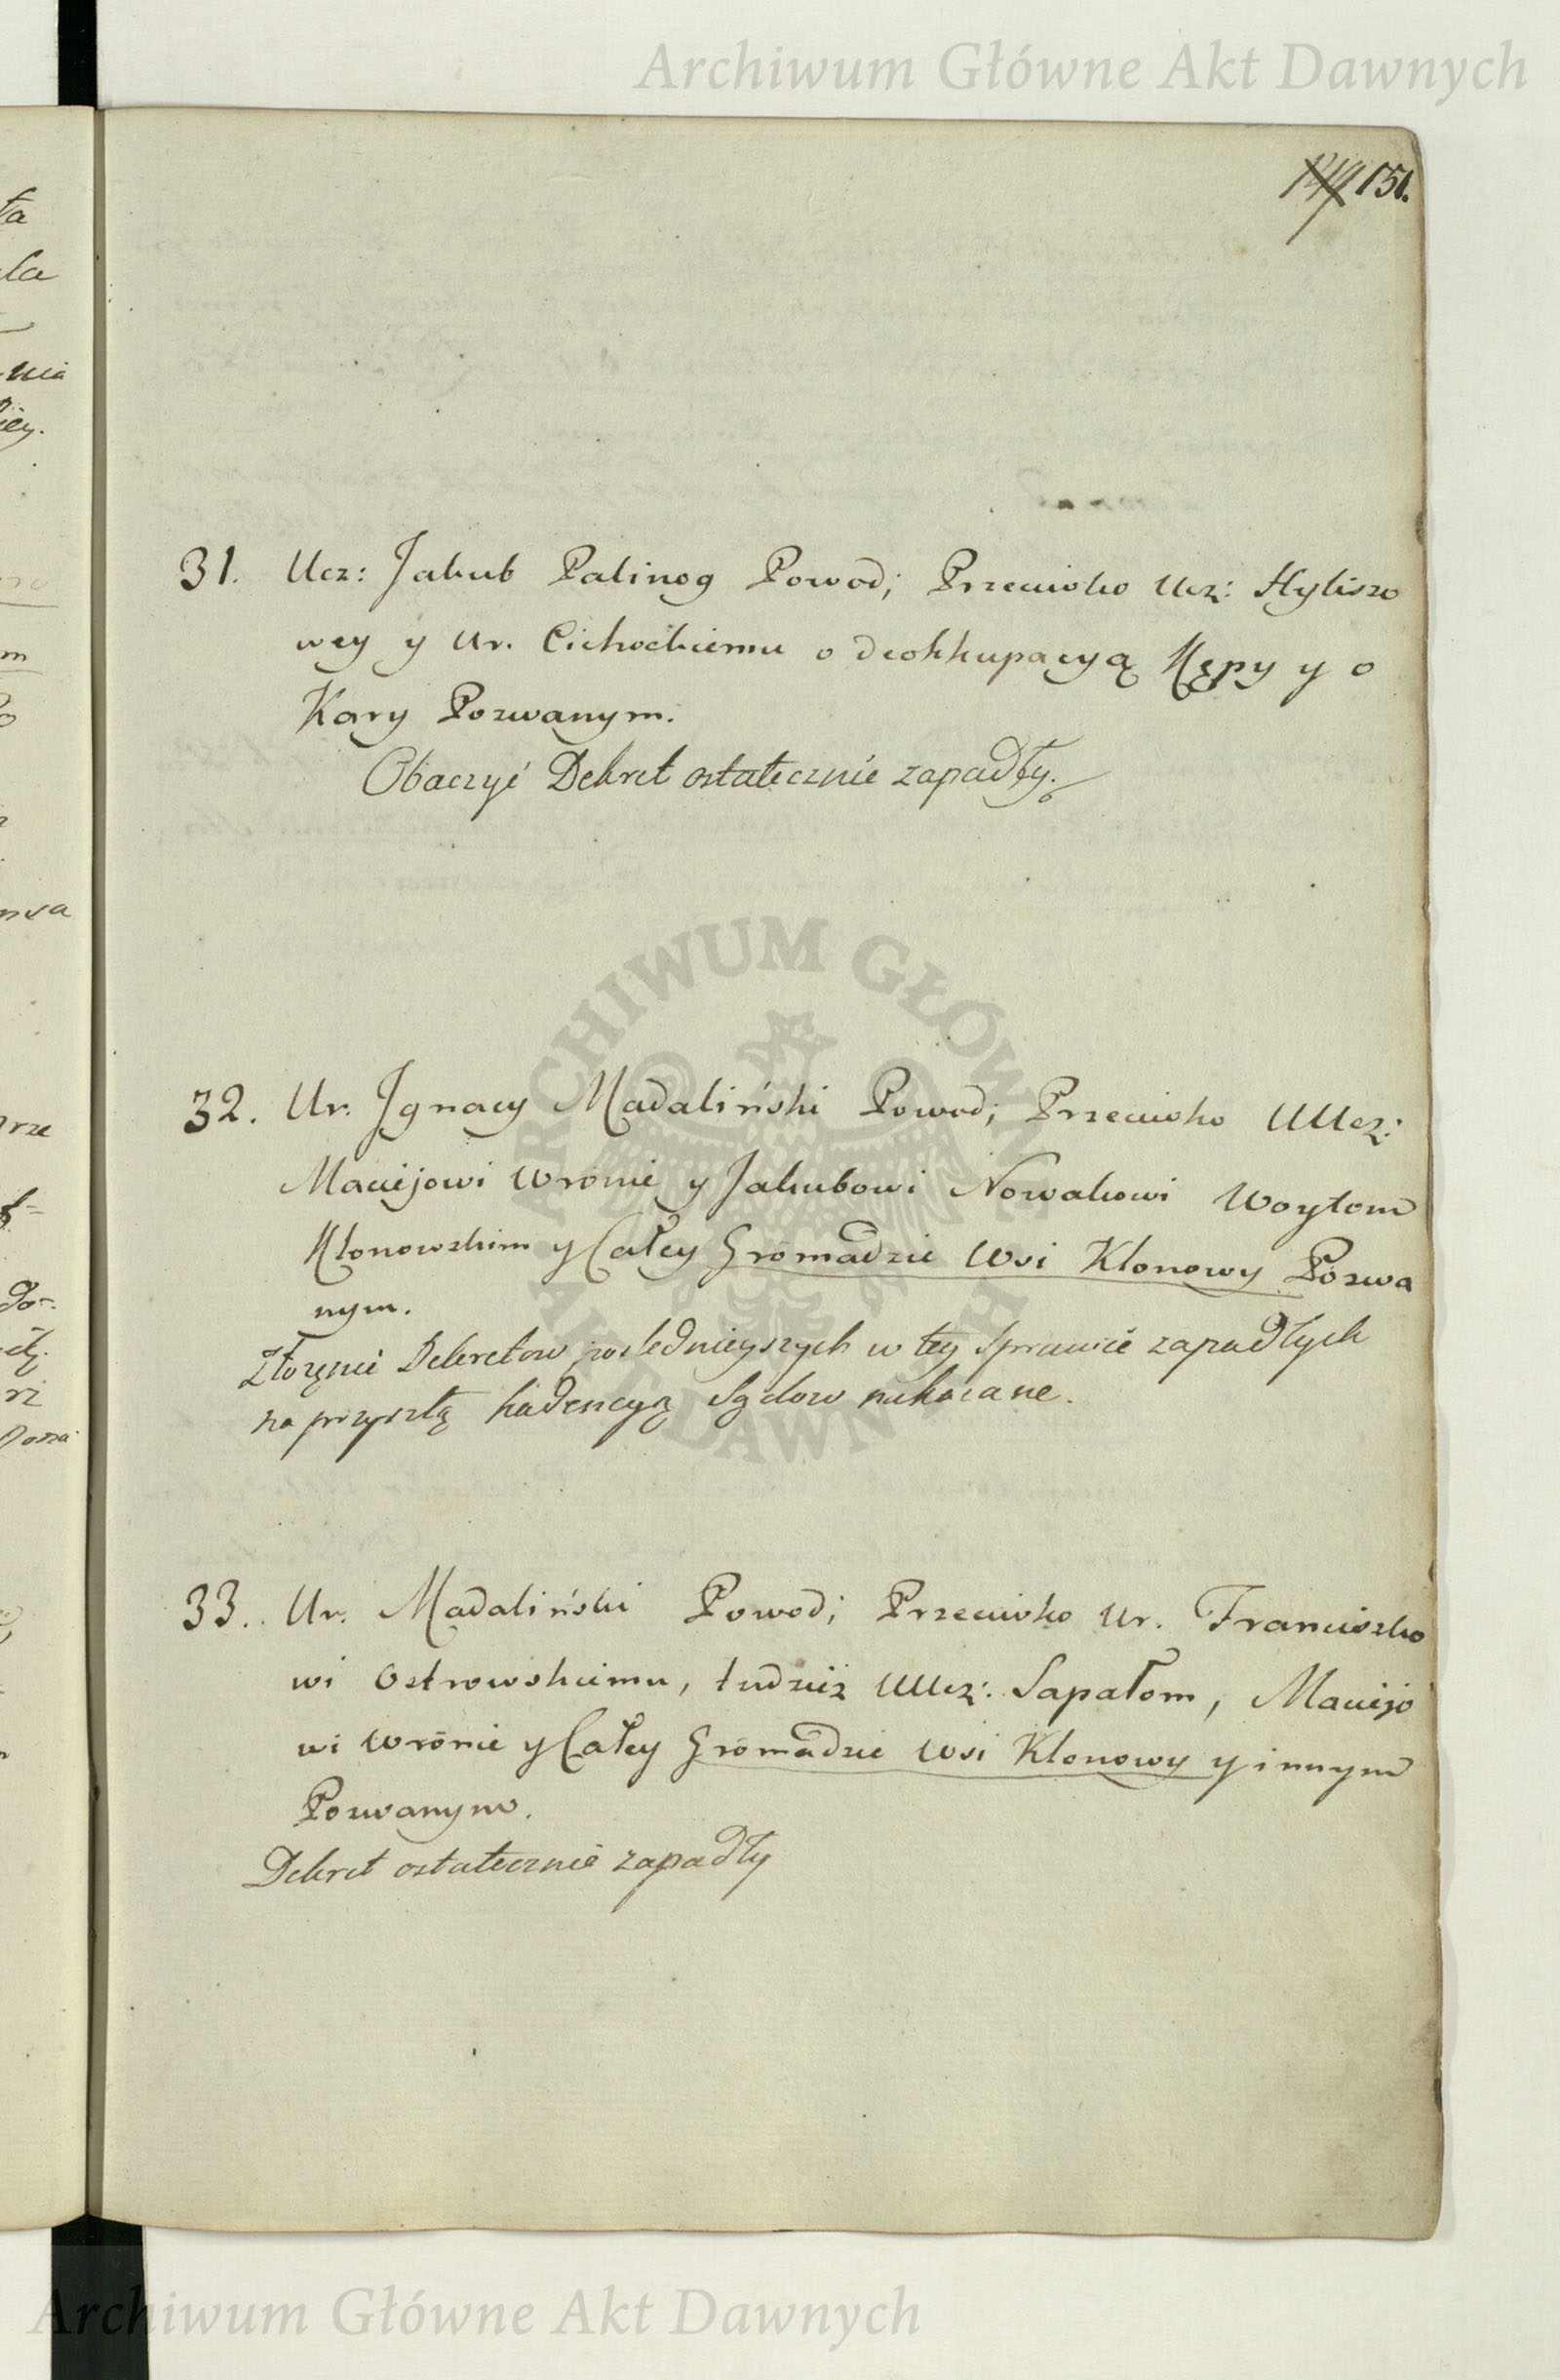 Archiwum Główne Akt Dawnych
151.
31. Ucz: Jakub Palinog Powod; Przeciwko Ucz: Hyliszo
wey y Ur. Cichockiemu o deokkupacyą Kępy y o
Kary Pozwanym.
Obaczyć Dekret ostatecznie zapadły.
ARCHIWUM GŁÓWNE AKT DAWNYCH
32. Ur. Ignacy Madaliński Powod; Przeciwko UUcz:
Maciejowi Wronie y Jakubowi Nowakowi Woytom
Klonowskim y Całey Gromadzie Wsi Klonowy Pozwa
nym.
Złożęnie Dekretow poslednieyszych w tey Sprawie zapadłych
na przyszłą kadencyą Sądow nakazane.
33. Ur. Madaliński Powod; Przeciwko Ur. Franciszko
wi Ostrowskiemu, tudzież UUcz: Sapałom, Maciejo
wi Wronie y Całey Gromadzie Wsi Klonowy y innym
Pozwanym.
Dekret ostatecznie zapadły
Archiwum Główne Akt Dawnych